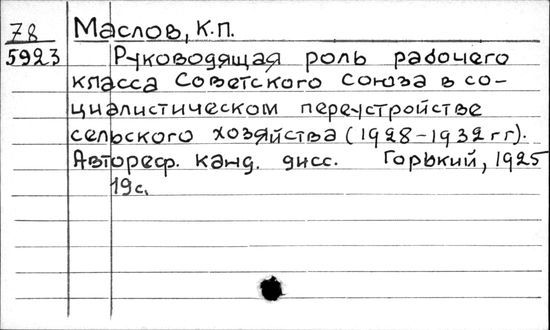 78 Маслов, К.П.
5923 Руководящая роль рабочего
класса Советского Союза в со-
циалистическом переустройстве
сельского хозяйства (1928-1932 гг).
Автореф. канд. дисс. Горький, 1925
19с.